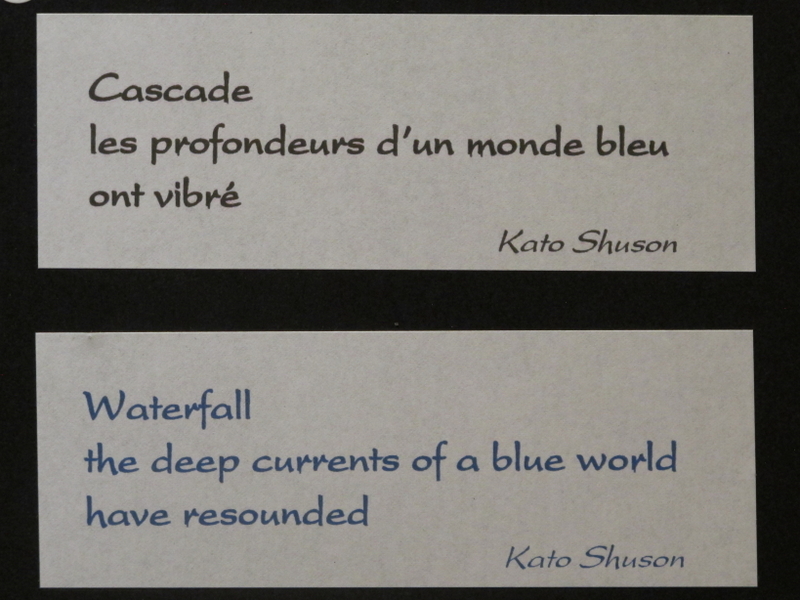 Cascade
les profondeurs d'un monde bleu
ont vibré
Kato Shuson
Waterfall
the deep currents of a blue world
have resounded
Kato Shuson